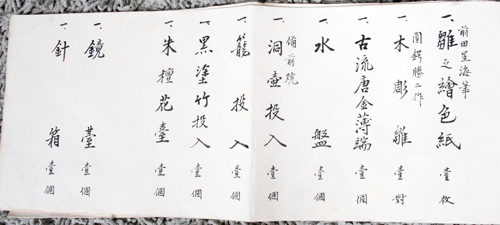 前田星海筆
一、雛之繪色紙 壹枚
圓鍔勝二作
一、木彫雛 壹對
一、古流唐金薄端 壹個
一、水盤 壹個
備前燒
一、洞壺投入 壹個
一、籠投入 壹個
一、黒塗竹投入 壹個
一、朱檀花臺 壹個
一、鏡臺 壹個
一、針箱 壹個